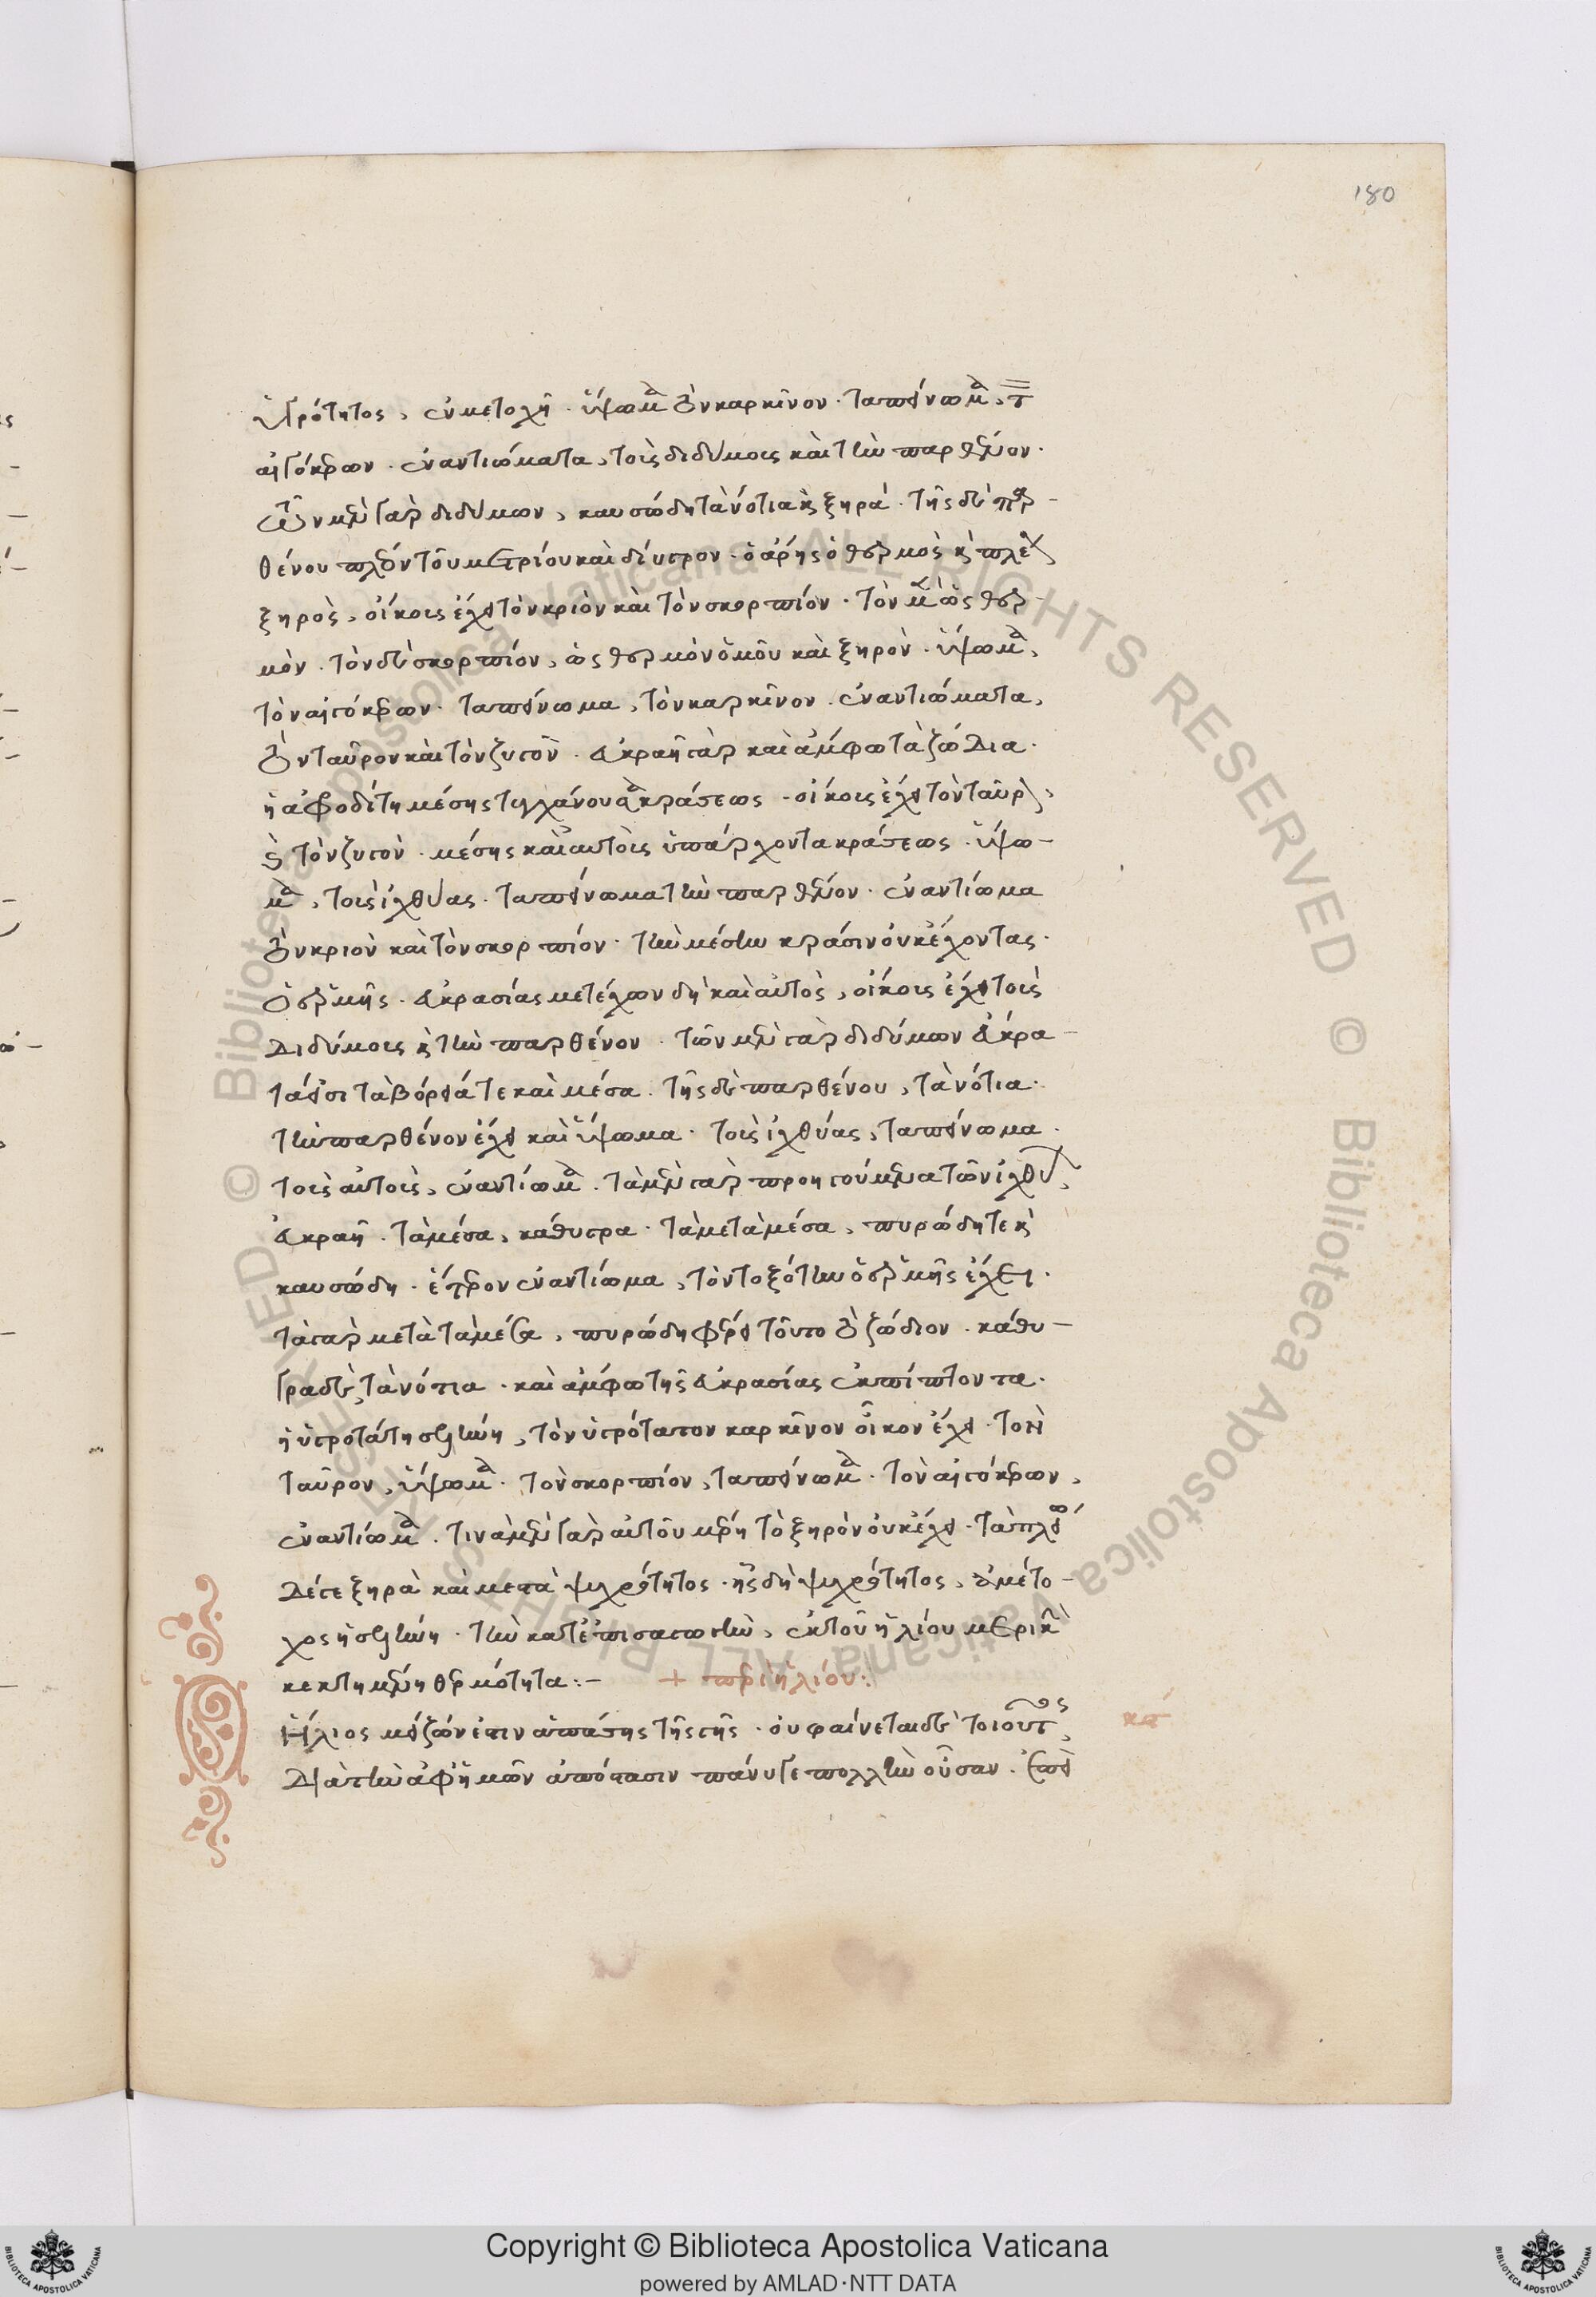 180
ὑγρότητος, ἐν μετοχῇ · ὕψωμα τὸν καρκῖνον · ταπείνωμα, τὸν
αἰγόκερων · ἐναντιώματα, τοὺς διδύμους καὶ τὴν παρθένον ·
τῶν μὲν γὰρ διδύμων, καυσώδη τὰ νότια καὶ ξηρά · τῆς δὲ παρ –
θένου πλέον τοῦ μετρίου καὶ δίυγρον · ὁ ἄρης ὁ θερμὸς καὶ πλέον
ξηρὸς, οἴκους ἔχει τὸν κριὸν καὶ τὸν σκορπίον · τὸν μὲν ὡς θερ –
μὸν · τὸν δὲ σκορπίον, ὡς θερμὸν ὁμοῦ καὶ ξηρὸν · ὕψωμα,
τὸν αἰγόκερων · ταπείνωμα, τὸν καρκῖνον · ἐναντιώματα,
τὸν ταῦρον καὶ τὸν ζυγὸν · εὐκραῆ γὰρ καὶ ἄμφω τὰ ζώδια ·
ἡ ἀφροδίτη μέσης τυγχάνουσα κράσεως · οἴκους ἔχει τὸν ταῦρον,
καὶ τὸν ζυγὸν · μέσης καὶ αὐτοὺς ὑπάρχοντα κράσεως · ὕψω –
μα, τοὺς ἰχθύας · ταπείνωμα τὴν παρθένον · ἐναντίωμα
τὸν κριὸν καὶ τὸν σκορπίον · τὴν μέσην κρᾶσιν οὐκ ἔχοντας ·
ὁ ἑρμῆς · εὐκρασίας μετέχων δὴ καὶ αὐτὸς, οἴκους ἔχει τοὺς
διδύμους καὶ τὴν παρθένον · τῶν μὲν γὰρ διδύμων εὔκρα –
τά εἰσι τὰ βόρειά τε καὶ μέσα · τῆς δὲ παρθένου, τὰ νότια ·
τὴν παρθένον ἔχει καὶ ὕψωμα · τοὺς ἰχθύας, ταπείνωμα ·
τοὺς αὐτοὺς, ἐναντίωμα · τὰ μὲν γὰρ προηγούμενα τῶν ἰχθύων,
εὐκραῆ · τὰ μέσα, κάθυγρα · τὰ μετὰ μέσα, πυρώδη τε καὶ
καυσώδη · ἕτερον ἐναντίωμα, τὸν τοξότην ὁ ἑρμῆς ἔχει ·
τὰ γὰρ μετὰ τὰ μέσα, πυρώδη φέρει τοῦτο τὸ ζώδιον · κάθυ –
γρα δὲ τὰ νότια · καὶ ἄμφω τῆς εὐκρασίας ἐκπίπτοντα ·
ἡ ὑγροτάτη σελήνη, τὸν ὑγρότατον καρκῖνον οἶκον ἔχει · τὸν
ταῦρον, ὕψωμα · τὸν σκορπίον, ταπείνωμα · τὸν αἰγόκερων,
ἐναντίωμα · τινὰ μὲν γὰρ αὐτοῦ μέρη τὸ ξηρὸν οὐκ ἔχει · τὰ πλείω
δέ γε ξηρὰ καὶ μετὰ ψυχρότητος · ἧς δὴ ψυχρότητος, ἀμέτο –
χος ἡ σελήνη · τὴν κατ' ἐπισαγωγὴν, ἐκ τοῦ ἡλίου μερικὴν
κεκτημένη θερμότητα :–      + περὶ ἡλίου :
Ἥλιος μείζων ἐστὶν ἁπάσης τῆς γῆς · οὐ φαίνεται δὲ τοιοῦτος,      κα
διὰ τὴν ἀφ' ἡμῶν ἀπόστασιν πάνυ γε πολλὴν οὖσαν · ἐπεὶ
Copyright © Biblioteca Apostolica Vaticana
powered by AMLAD·NTT DATA